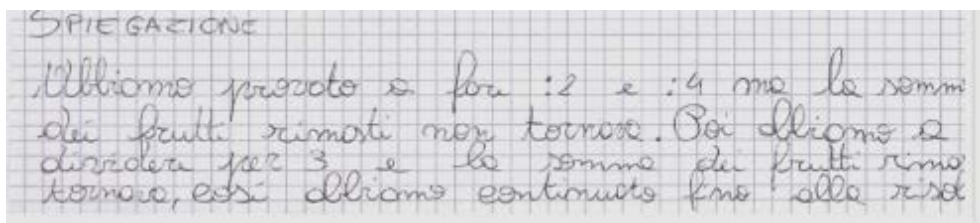 SPIEGAZIONE
Abbiamo provato a far :2 e :4 ma la somm
dei frutti rimasti non tornava. Poi abbiamo a
dividere per 3 e la somma dei frutti rima
tornava, così abbiamo continuato fino alla risol